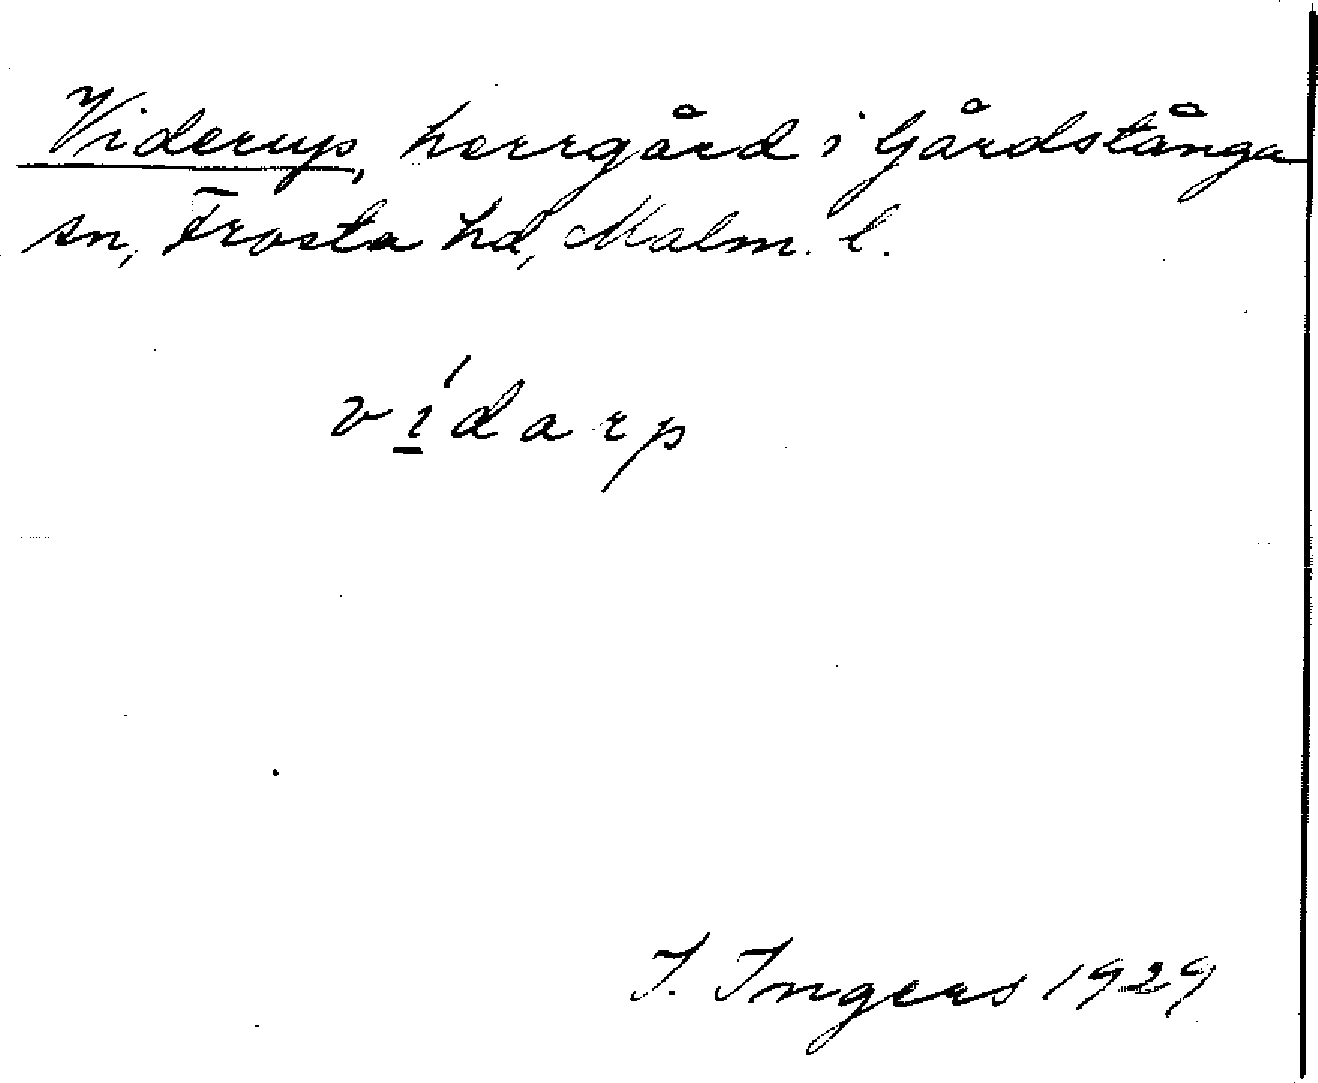 Viderup, herrgård i Gårdstånga
sn, Frosta hd, Malm. l.
ví̱darp
I. Ingers 1929